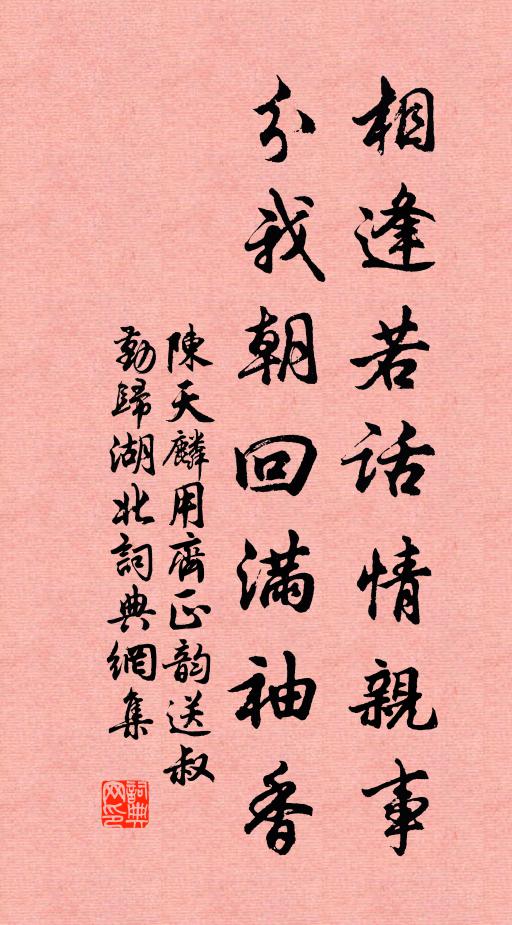 相逢若話情親事
分我朝回滿袖香
陳天麟用齊正韵送叔
勤歸湖北詞典網集
詞典
网印